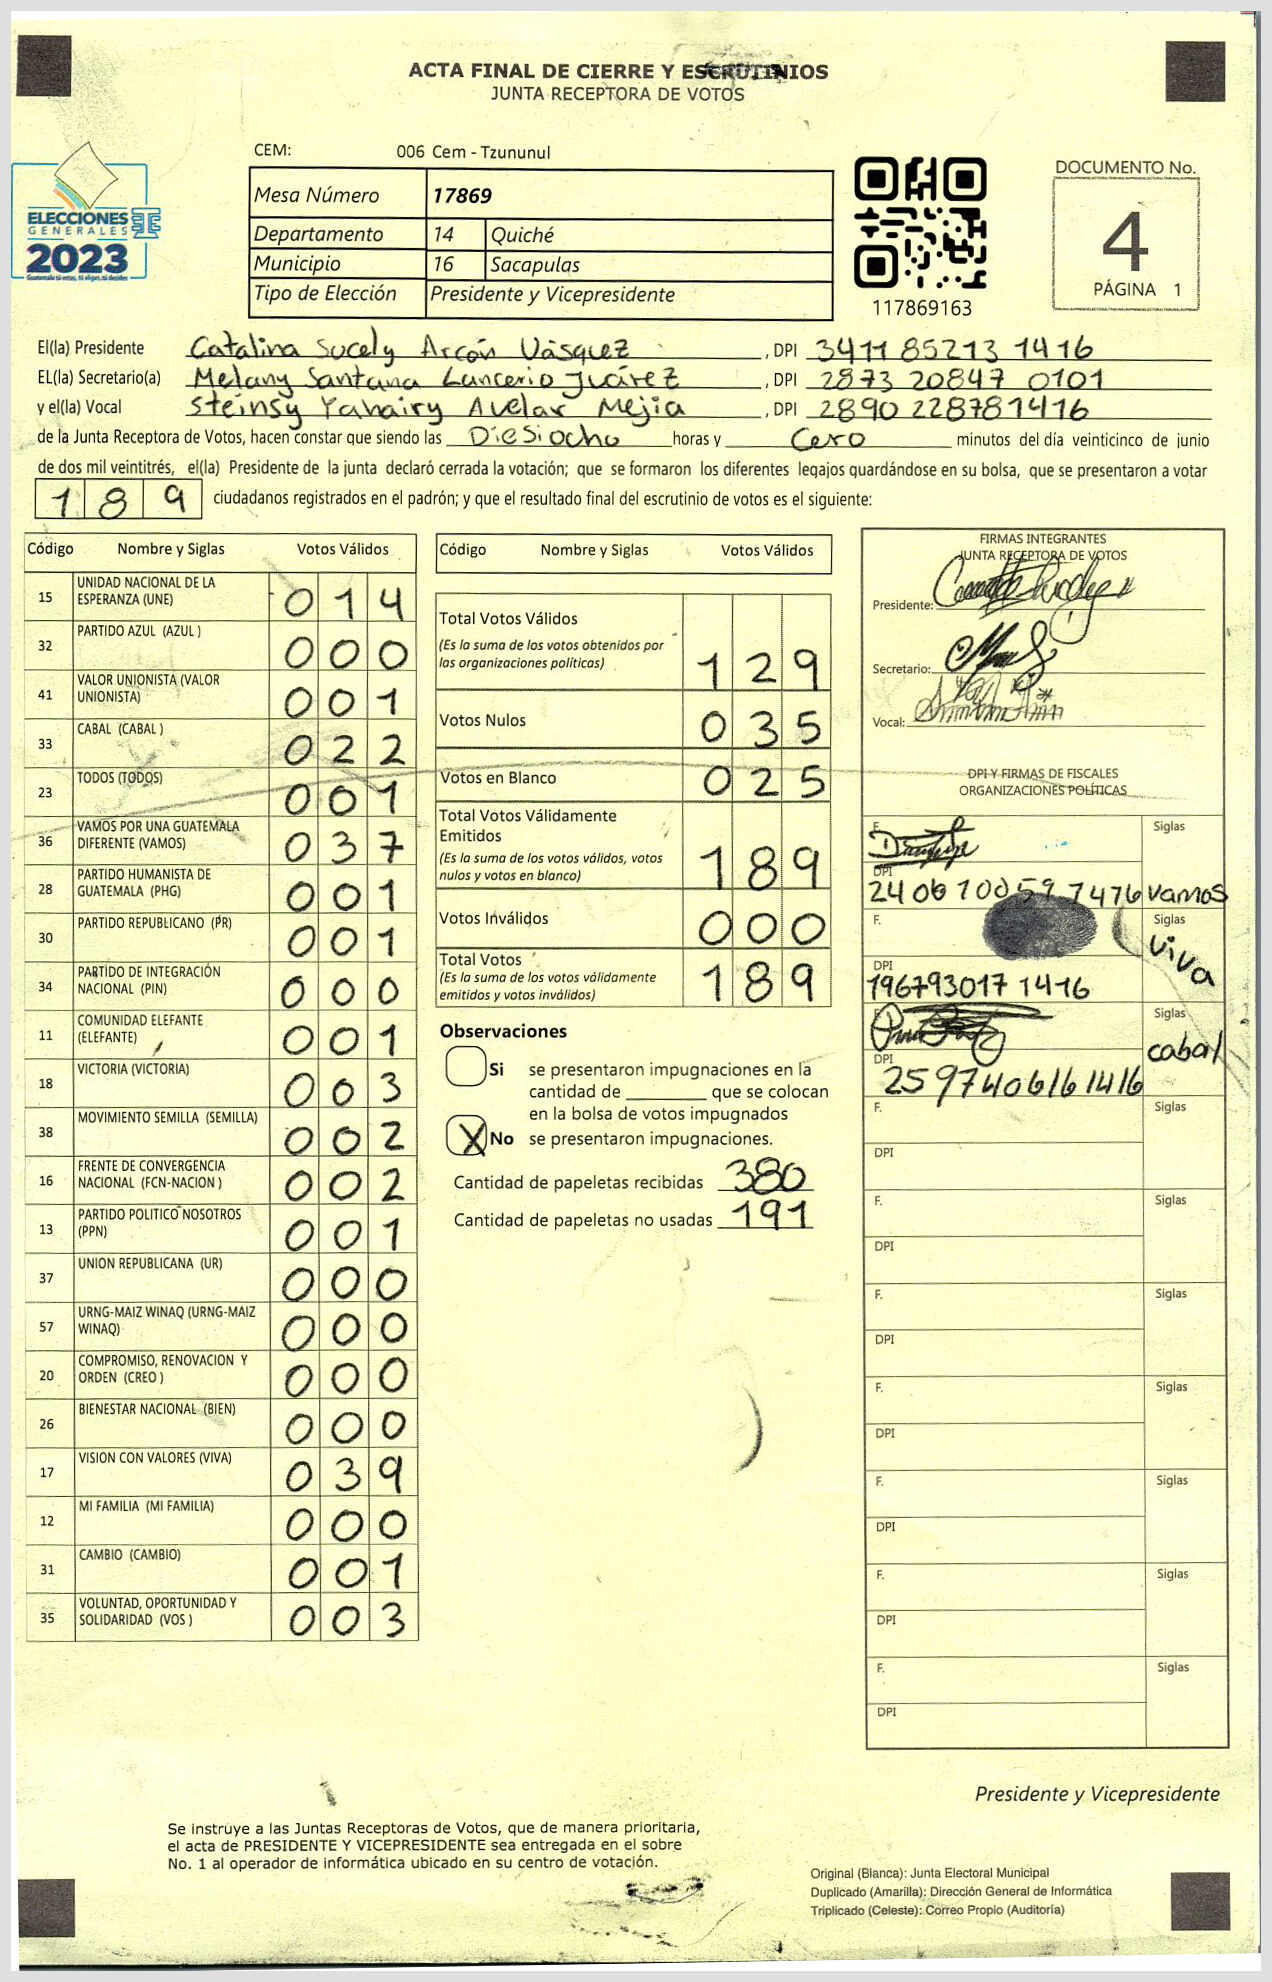 ACTA FINAL DE CIERRE Y ESCRUTINIOS
JUNTA RECEPTORA DE VOTOS
CEM: 006 Cem - Tzununul
DOCUMENTO No.
4
PÁGINA 1
ELECCIONES
GENERALES
2023
Mesa Número 17869
Departamento 14 Quiché
Municipio 16 Sacapulas
Tipo de Elección Presidente y Vicepresidente
117869163
El(la) Presidente Catalina Sucely Arcón Vásquez, DPI 3411 85213 1416
EL(la) Secretario(a) Melany Santana Lancerio Juárez, DPI 2873 20847 0101
y el(la) Vocal Steinsy Yahairy Avelar Mejia, DPI 2890 228781416
de la Junta Receptora de Votos, hacen constar que siendo las Diesiocho horas y Cero minutos del día veinticinco de junio
de dos mil veintitrés, el(la) Presidente de la junta declaró cerrada la votación; que se formaron los diferentes legajos quardándose en su bolsa, que se presentaron a votar
189 ciudadanos registrados en el padrón; y que el resultado final del escrutinio de votos es el siguiente:
Código Nombre y Siglas Votos Válidos
15 UNIDAD NACIONAL DE LA ESPERANZA (UNE) 014
32 PARTIDO AZUL (AZUL ) 000
41 VALOR UNIONISTA (VALOR UNIONISTA) 001
33 CABAL (CABAL ) 022
23 TODOS (TODOS) 001
36 VAMOS POR UNA GUATEMALA DIFERENTE (VAMOS) 037
28 PARTIDO HUMANISTA DE GUATEMALA (PHG) 001
30 PARTIDO REPUBLICANO (PR) 001
34 PARTIDO DE INTEGRACIÓN NACIONAL (PIN) 000
11 COMUNIDAD ELEFANTE (ELEFANTE) 001
18 VICTORIA (VICTORIA) 003
38 MOVIMIENTO SEMILLA (SEMILLA) 002
16 FRENTE DE CONVERGENCIA NACIONAL (FCN-NACION ) 002
13 PARTIDO POLITICO NOSOTROS (PPN) 001
37 UNION REPUBLICANA (UR) 000
57 URNG-MAIZ WINAQ (URNG-MAIZ WINAQ) 000
20 COMPROMISO, RENOVACION Y ORDEN (CREO ) 000
26 BIENESTAR NACIONAL (BIEN) 000
17 VISION CON VALORES (VIVA) 039
12 MI FAMILIA (MI FAMILIA) 000
31 CAMBIO (CAMBIO) 001
35 VOLUNTAD, OPORTUNIDAD Y SOLIDARIDAD (VOS ) 003
Código Nombre y Siglas Votos Válidos
Total Votos Válidos
(Es la suma de los votos obtenidos por las organizaciones políticas) 129
Votos Nulos 035
Votos en Blanco 025
Total Votos Válidamente Emitidos
(Es la suma de los votos válidos, votos nulos y votos en blanco) 189
Votos Inválidos 000
Total Votos
(Es la suma de los votos válidamente emitidos y votos inválidos) 189
Observaciones
Si se presentaron impugnaciones en la
cantidad de ________ que se colocan
en la bolsa de votos impugnados
X No se presentaron impugnaciones.
Cantidad de papeletas recibidas 380
Cantidad de papeletas no usadas 191
FIRMAS INTEGRANTES
JUNTA RECEPTORA DE VOTOS
Presidente:
Secretario:
Vocal:
DPI Y FIRMAS DE FISCALES
ORGANIZACIONES POLÍTICAS
F. Siglas
DPI 7476 vamos
F. Siglas
viva
DPI 196793017 1416
F. Siglas
cabal
DPI 2597406161416
F. Siglas
DPI
F. Siglas
DPI
F. Siglas
DPI
F. Siglas
DPI
F. Siglas
DPI
F. Siglas
DPI
F. Siglas
DPI
Presidente y Vicepresidente
Se instruye a las Juntas Receptoras de Votos, que de manera prioritaria,
el acta de PRESIDENTE Y VICEPRESIDENTE sea entregada en el sobre
No. 1 al operador de informática ubicado en su centro de votación.
Original (Blanca): Junta Electoral Municipal
Duplicado (Amarilla): Dirección General de Informática
Triplicado (Celeste): Correo Propio (Auditoría)